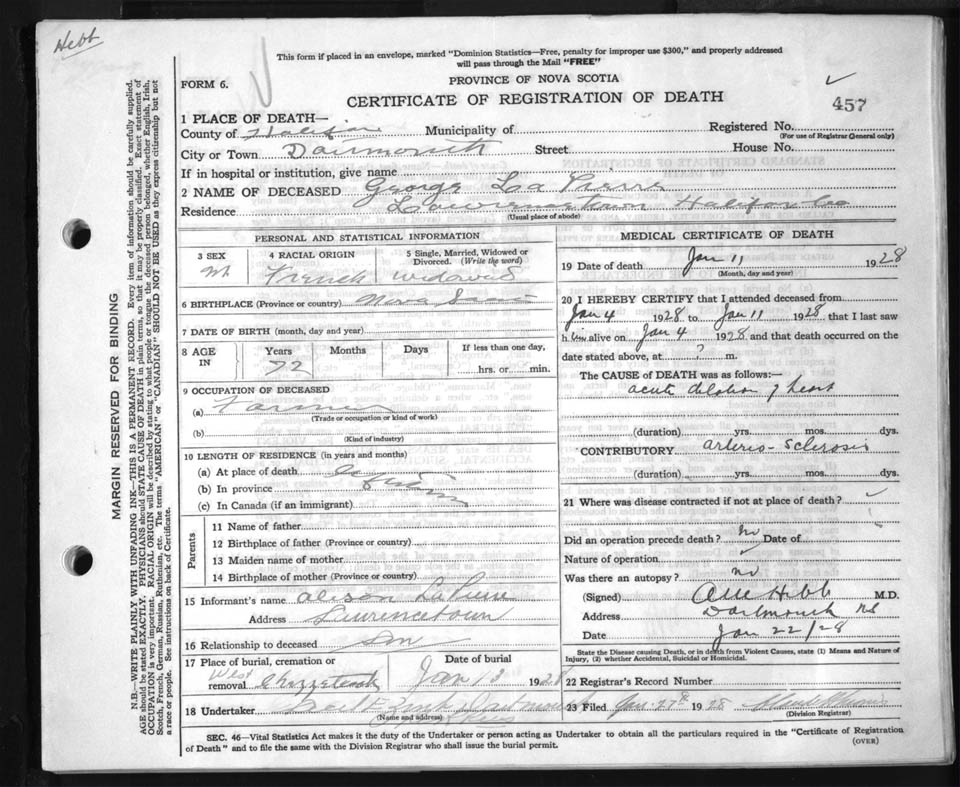 Hebb
This form if placed in an envelope, marked "Dominion Statistics—Free, penalty for improper use $300," and properly addressed
will pass through the Mail "FREE"
FORM 6.
PROVINCE OF NOVA SCOTIA
CERTIFICATE OF REGISTRATION OF DEATH
457
1 PLACE OF DEATH—
County of Halifax Municipality of Registered No.
(For use of Registrar General only)
City or Town Dartmouth Street House No.
If in hospital or institution, give name
2 NAME OF DECEASED George La Pierre
Residence Lawrencetown Halifax Co
(Usual place of abode)
PERSONAL AND STATISTICAL INFORMATION
3 SEX 4 RACIAL ORIGIN 5 Single, Married, Widowed or
Divorced. (Write the word)
M French widowed
6 BIRTHPLACE (Province or country) Nova Scotia
7 DATE OF BIRTH (month, day and year)
8 AGE IN Years Months Days If less than one day,
72 hrs. or min.
9 OCCUPATION OF DECEASED
(a) Farmer
(Trade or occupation or kind of work)
(b)
(Kind of industry)
10 LENGTH OF RESIDENCE (in years and months)
(a) At place of death
(b) In province
(c) In Canada (if an immigrant)
Parents
11 Name of father
12 Birthplace of father (Province or country)
13 Maiden name of mother
14 Birthplace of mother (Province or country)
15 Informant's name Alison LaPierre
Address Lawrencetown
16 Relationship to deceased Son
17 Place of burial, cremation or Date of burial
removal West Chezzetcook Jan 13 1928
18 Undertaker
(Name and address)
MEDICAL CERTIFICATE OF DEATH
19 Date of death Jan 11 1928
(Month, day and year)
20 I HEREBY CERTIFY that I attended deceased from
Jan 4 1928 to Jan 11 1928 that I last saw
h im alive on Jan 4 1928 and that death occurred on the
date stated above, at ? m.
The CAUSE OF DEATH was as follows:—
acute dilation of heart
(duration) yrs. mos. dys.
CONTRIBUTORY arterio-sclerosis
(duration) yrs. mos. dys.
21 Where was disease contracted if not at place of death?
Did an operation precede death? no Date of
Nature of operation
Was there an autopsy? no
(Signed) Hebb M.D.
Address Dartmouth NS
Date Jan 22/28
State the Disease causing Death, or in death from Violent Causes, state (1) Means and Nature of
Injury, (2) whether Accidental, Suicidal or Homicidal.
22 Registrar's Record Number
23 Filed Jan. 27th 1928
(Division Registrar)
SEC. 46—Vital Statistics Act makes it the duty of the Undertaker or person acting as Undertaker to obtain all the particulars required in the "Certificate of Registration
of Death" and to file the same with the Division Registrar who shall issue the burial permit.
(OVER)
MARGIN RESERVED FOR BINDING
N.B.—WRITE PLAINLY WITH UNFADING INK—THIS IS A PERMANENT RECORD. Every item of information should be carefully supplied.
AGE should be stated EXACTLY. PHYSICIANS should STATE CAUSE OF DEATH in plain terms, so that it may be properly classified. Exact statement of
OCCUPATION is very important. RACIAL ORIGIN will be described by stating to what people or tongue the deceased person belonged, whether English, Irish,
Scotch, French, German, Russian, Ruthenian, etc. The terms "AMERICAN" or "CANADIAN" SHOULD NOT BE USED as they express citizenship but not
a race or people. See instructions on back of Certificate.